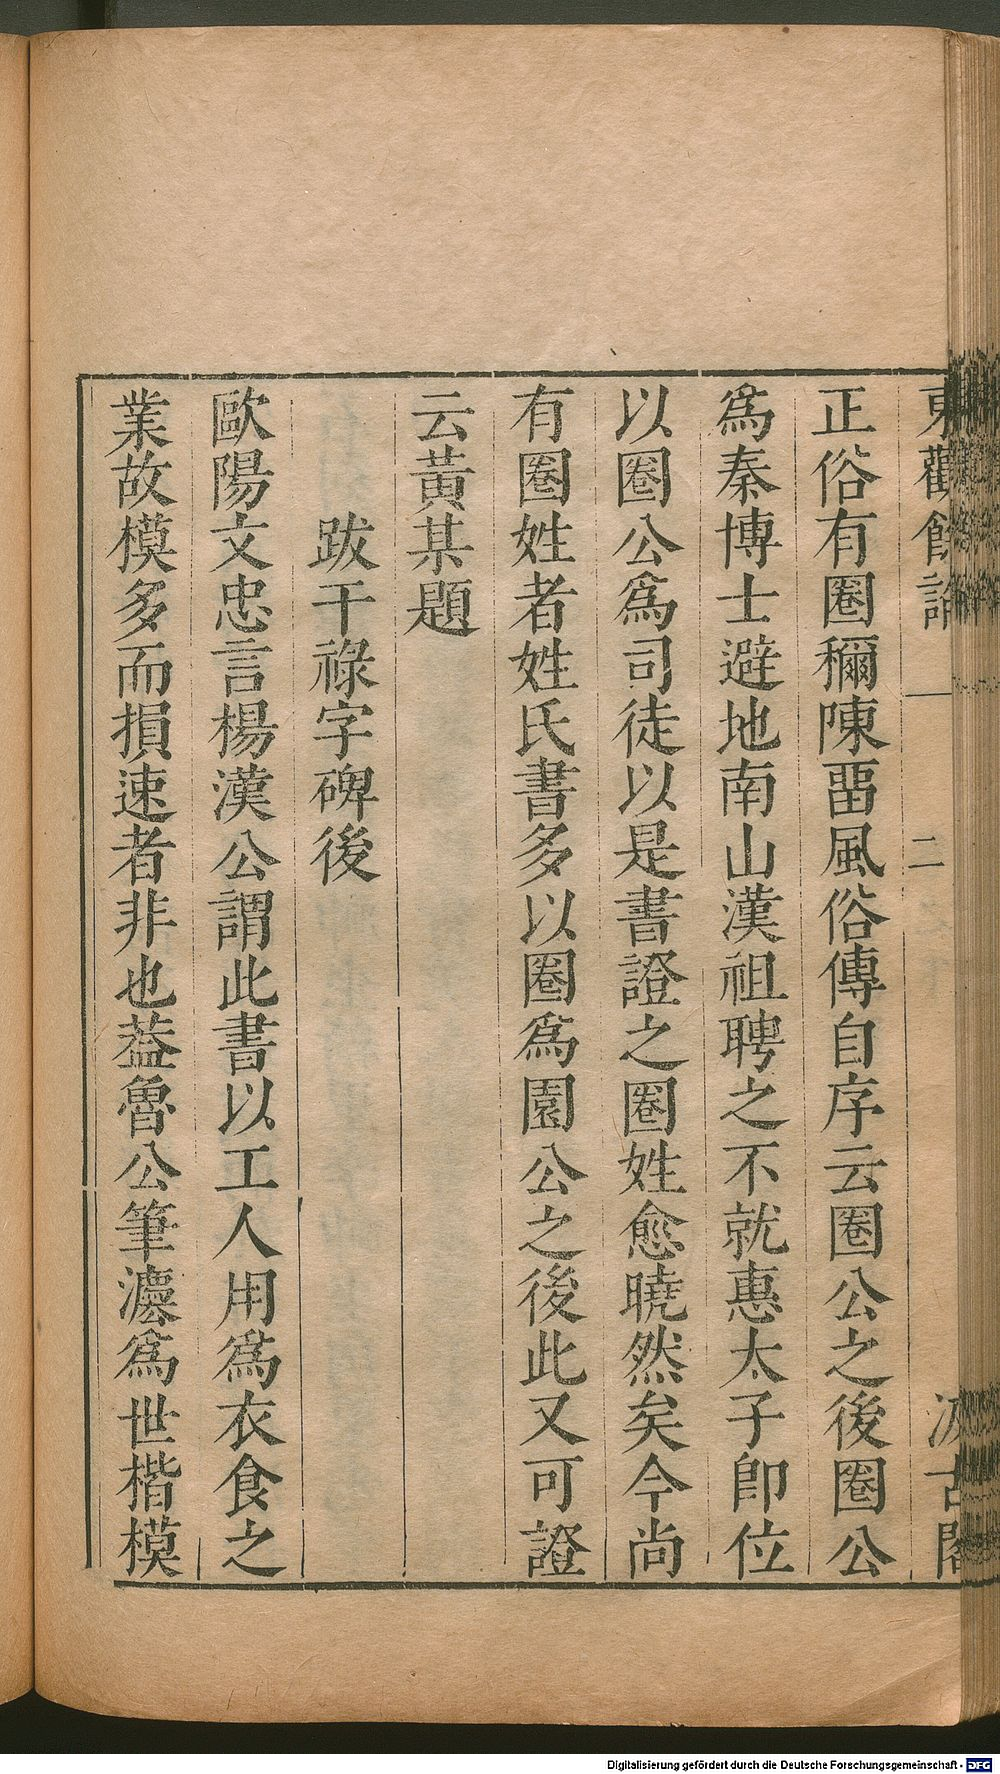 東觀餘論 二 汲古閣
正俗有圈稱陳畱風俗傳自序云圈公之後圈公
爲秦博士避地南山漢祖聘之不就惠太子卽位
以圈公爲司徒以是書證之圈姓愈曉然矣今尚
有圈姓者姓氏書多以圈爲園公之後此又可證
云黃某題
跋干祿字碑後
歐陽文忠言楊漢公謂此書以工人用爲衣食之
業故模多而損速者非也葢魯公筆灋爲世楷模
Digitalisierung gefördert durch die Deutsche Forschungsgemeinschaft - DFG